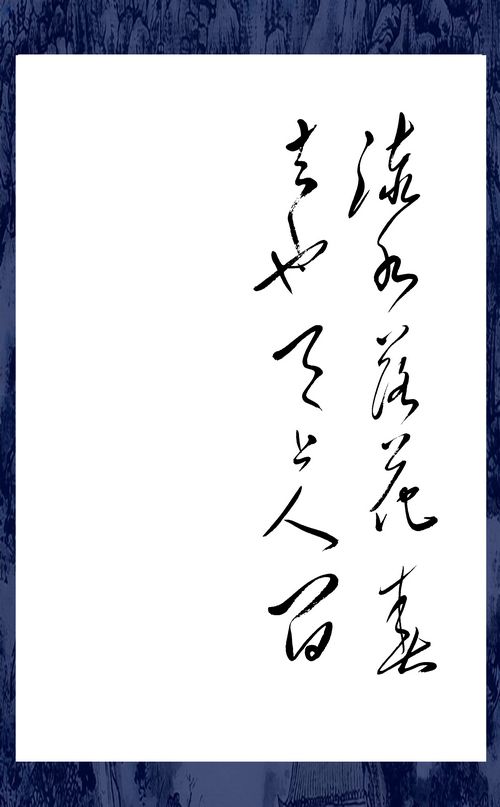 流水落花春
去也天上人间